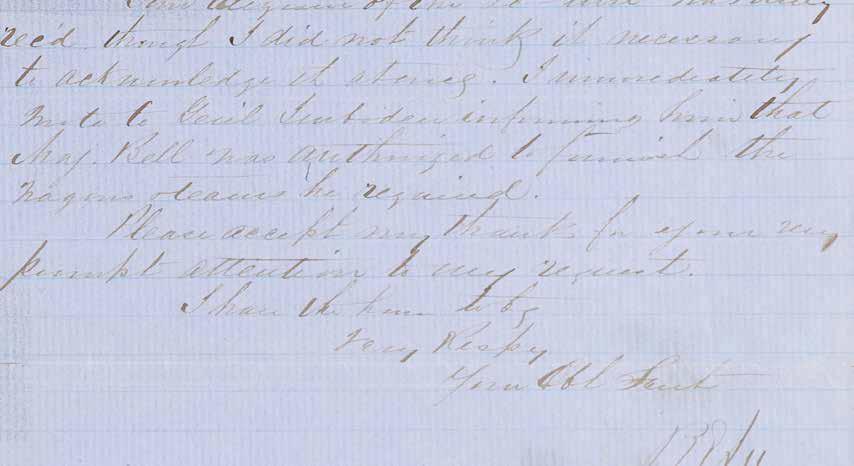 of the
rec'd though I did not think it necessary
to acknowledge it at once. I immediately
wrote to Genl Imboden informing him that
Maj. Bell was authorized to furnish the
wagons & teams he required.
Please accept my thanks for your very
prompt attention to my request.
I have the honor to be
Very Respy
Your Obt Servt